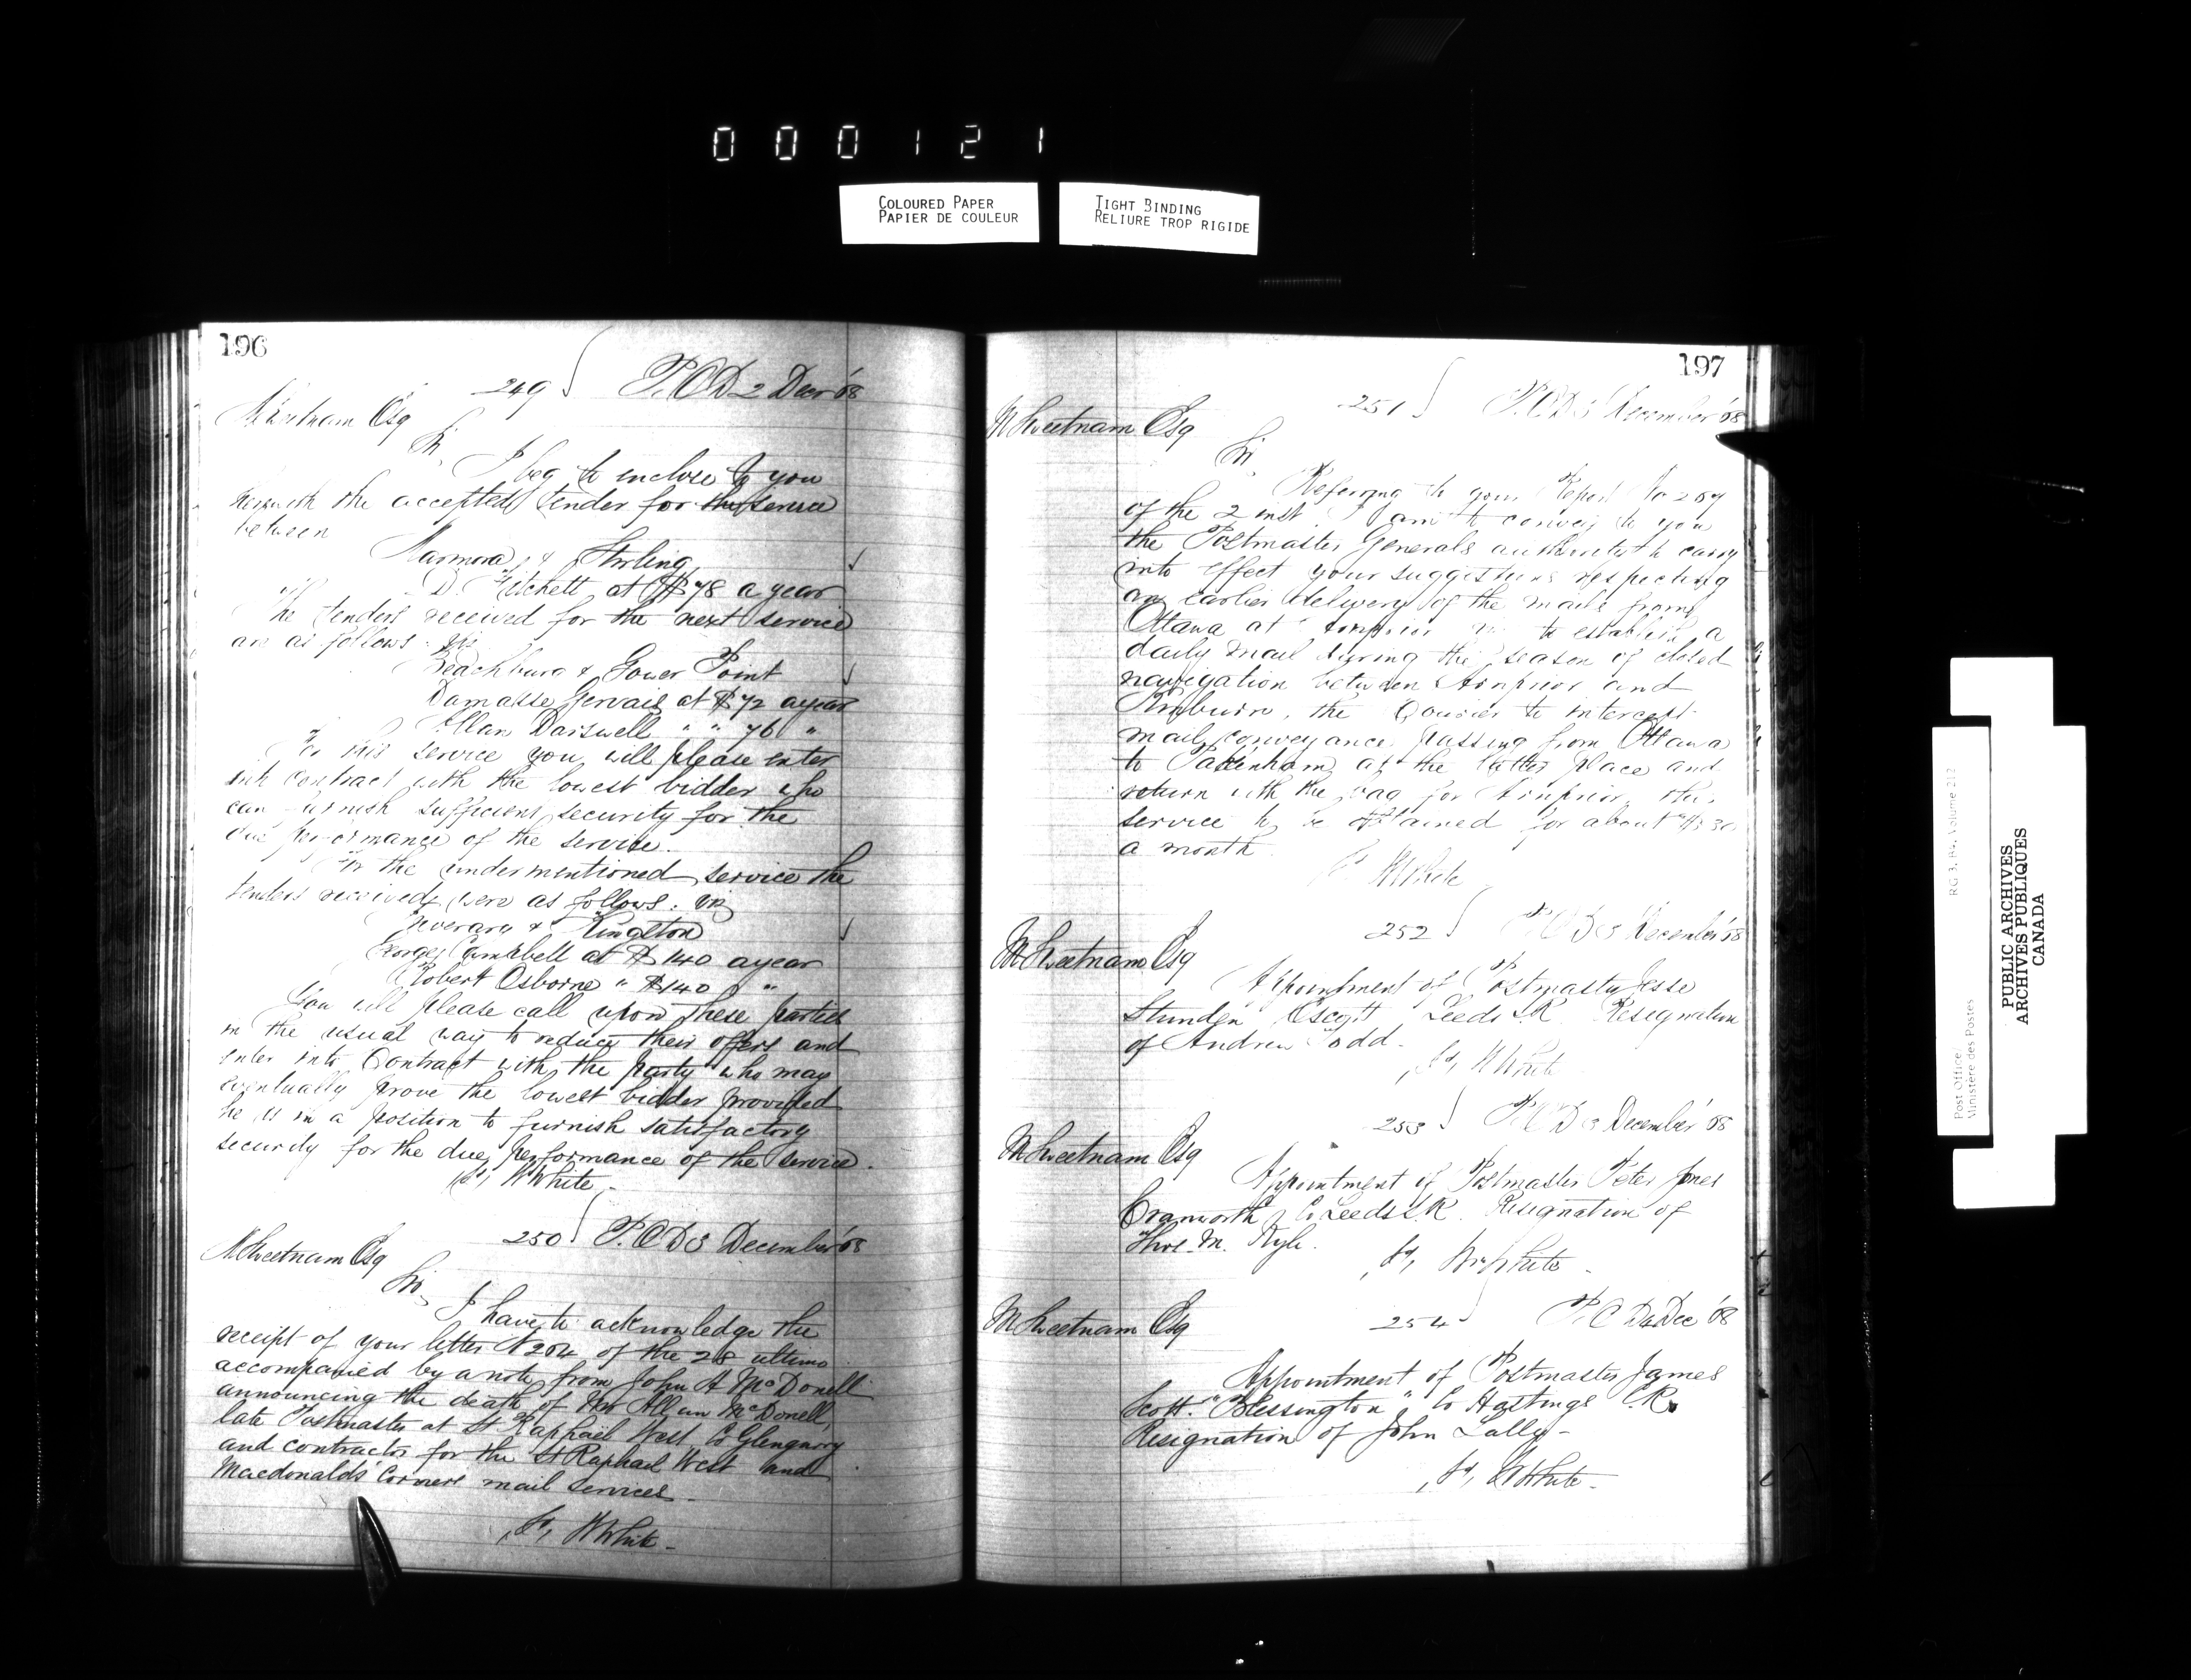 000121
COLOURED PAPER
PAPIER DE COULEUR
TIGHT BINDING
RELIURE TROP RIGIDE
196
249 P.O.D 2 Decr '68
MSweetnam Esq
Sir,
I beg to inclose to you
herewith the accepted tender for the service
between
Marmora & Stirling
D. Fitchett at $78 a year
The tenders received for the next service
are as follows: viz
Beachburg & Gower Point
Damasse Gervais at $72 a year
Allan Dariswell " " 76 "
For this service you will please enter
into contract with the lowest bidder who
can furnish sufficient security for the
due performance of the service.
For the undermentioned service the
tenders received were as follows: viz
Inverary & Kingston
George Campbell at $140 a year
Robert Osborne " $140 "
You will please call upon these parties
in the usual way to reduce their offers and
enter into Contract with the party who may
eventually prove the lowest bidder provided
he is in a position to furnish satisfactory
security for the due performance of the service.
Sd, WWhite
250 P.O.D 3 December '68
MSweetnam Esq
Sir,
I have to acknowledge the
receipt of your letter N 204 of the 28 ultimo
accompanied by a note from John A McDonell
announcing the death of Mr Allan McDonell,
late Postmaster at St Raphael West Co Glengarry
and contractor for the St Raphael West and
Macdonalds Corners mail services.
Sd, WWhite
197
251 P.O.D 3 December '68
MSweetnam Esq
Sir,
Referring to your Report No 207
of the 2 inst I am to convey to you
the Postmaster Generals authority to carry
into effect your suggestions respecting
an earlier delivery of the mails from
Ottawa at Arnprior viz to establish a
daily mail during the season of closed
navigation between Arnprior and
Kinburn, the Courier to intercept
mail conveyance passing from Ottawa
to Pakenham at the latter place and
return with the bag for Arnprior, the
service to be obtained for about $30
a month
Sd WWhite
252 P.O.D 3 December '68
MSweetnam Esq
Appointment of Postmaster Jesse
Stunden Escott Leeds S.R Resignation
of Andrew Todd.
Sd, WWhite
253 P.O.D 3 December '68
MSweetnam Esq
Appointment of Postmaster Peter Jones
Cranworth Co Leeds S.R. Resignation of
Thos. M. Kyle.
Sd, WWhite
254 P.O D 4 Dec '68
MSweetnam Esq
Appointment of Postmaster James
Scott. "Blessington" Co Hastings E.R.
Resignation of John Lally -
Sd, WWhite
Post Office/
Ministère des Postes
RG 3, B4, Volume 212
PUBLIC ARCHIVES
ARCHIVES PUBLIQUES
CANADA